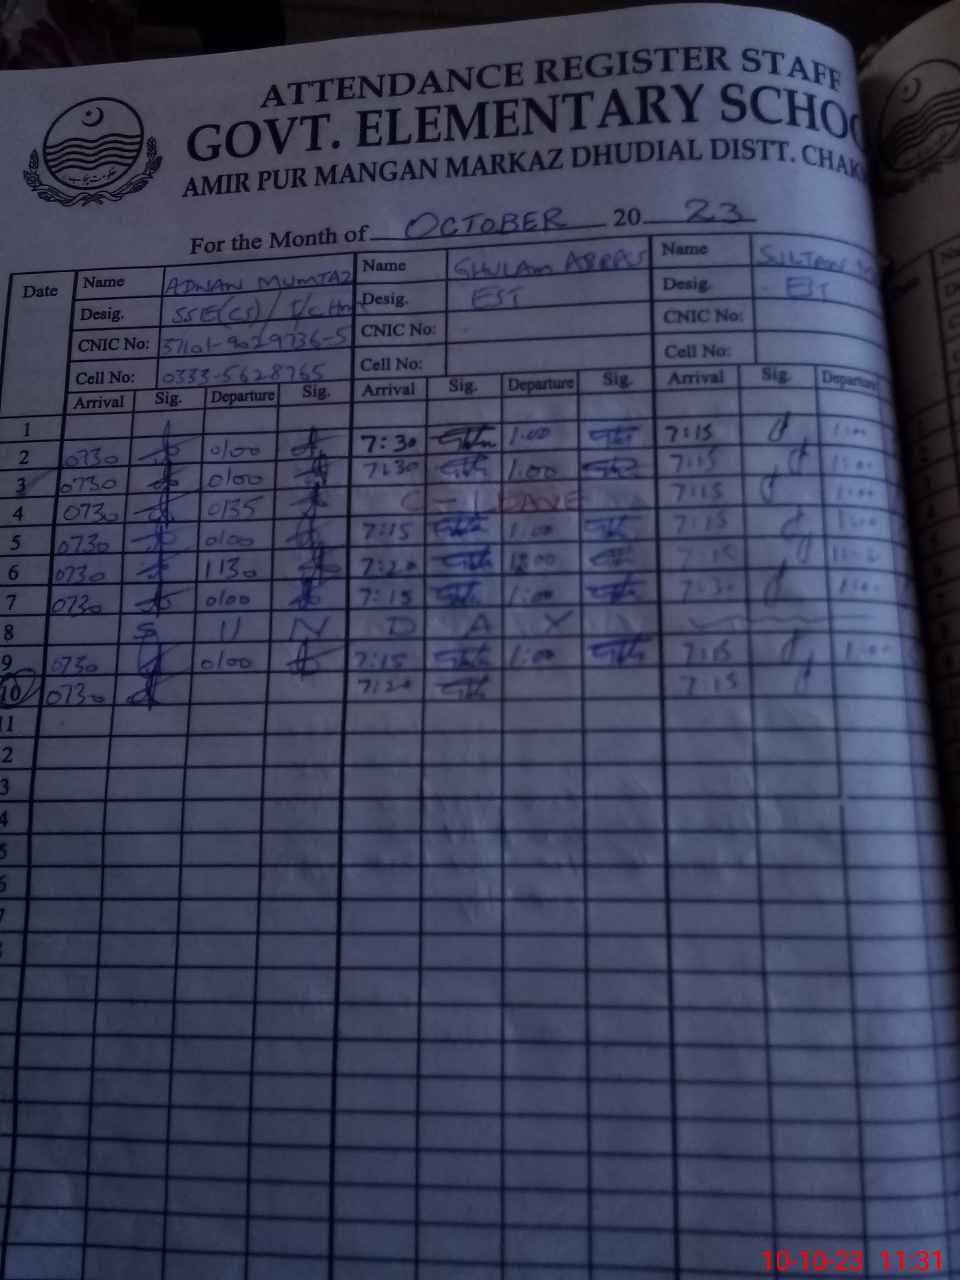 ATTENDANCE REGISTER STAFF
GOVT. ELEMENTARY SCHOO
AMIR PUR MANGAN MARKAZ DHUDIAL DISTT. CHAK
For the Month of OCTOBER 20 23
Date Name ADNAN MUMTAZ Name GHULAM ABBAS Name SULTAN
Desig. SSE(CS) / I/C Desig. EST Desig. EST
CNIC No: 37101-9029736-5 CNIC No: CNIC No:
Cell No: 0333-5628765 Cell No: Cell No:
Arrival Sig. Departure Sig. Arrival Sig. Departure Sig. Arrival Sig. Departure
1
2 0730 0100 7:30 1:00 7:15 1:00
3 0730 0100 7:30 1:00 7:15 1:00
4 0730 0135 C-LEAVE 7:15 1:00
5 0730 0100 7:15 1:00 7:15 1:00
6 0730 1130 7:20 7:15
7 0730 0100 7:15 1:00 7:30 1:00
8 S U N D A Y
9 0730 0100 7:15 1:00 7:15 1:00
10 0730 7:20 7:15
11
2
3
4
5
6
7
10-10-23 11:31